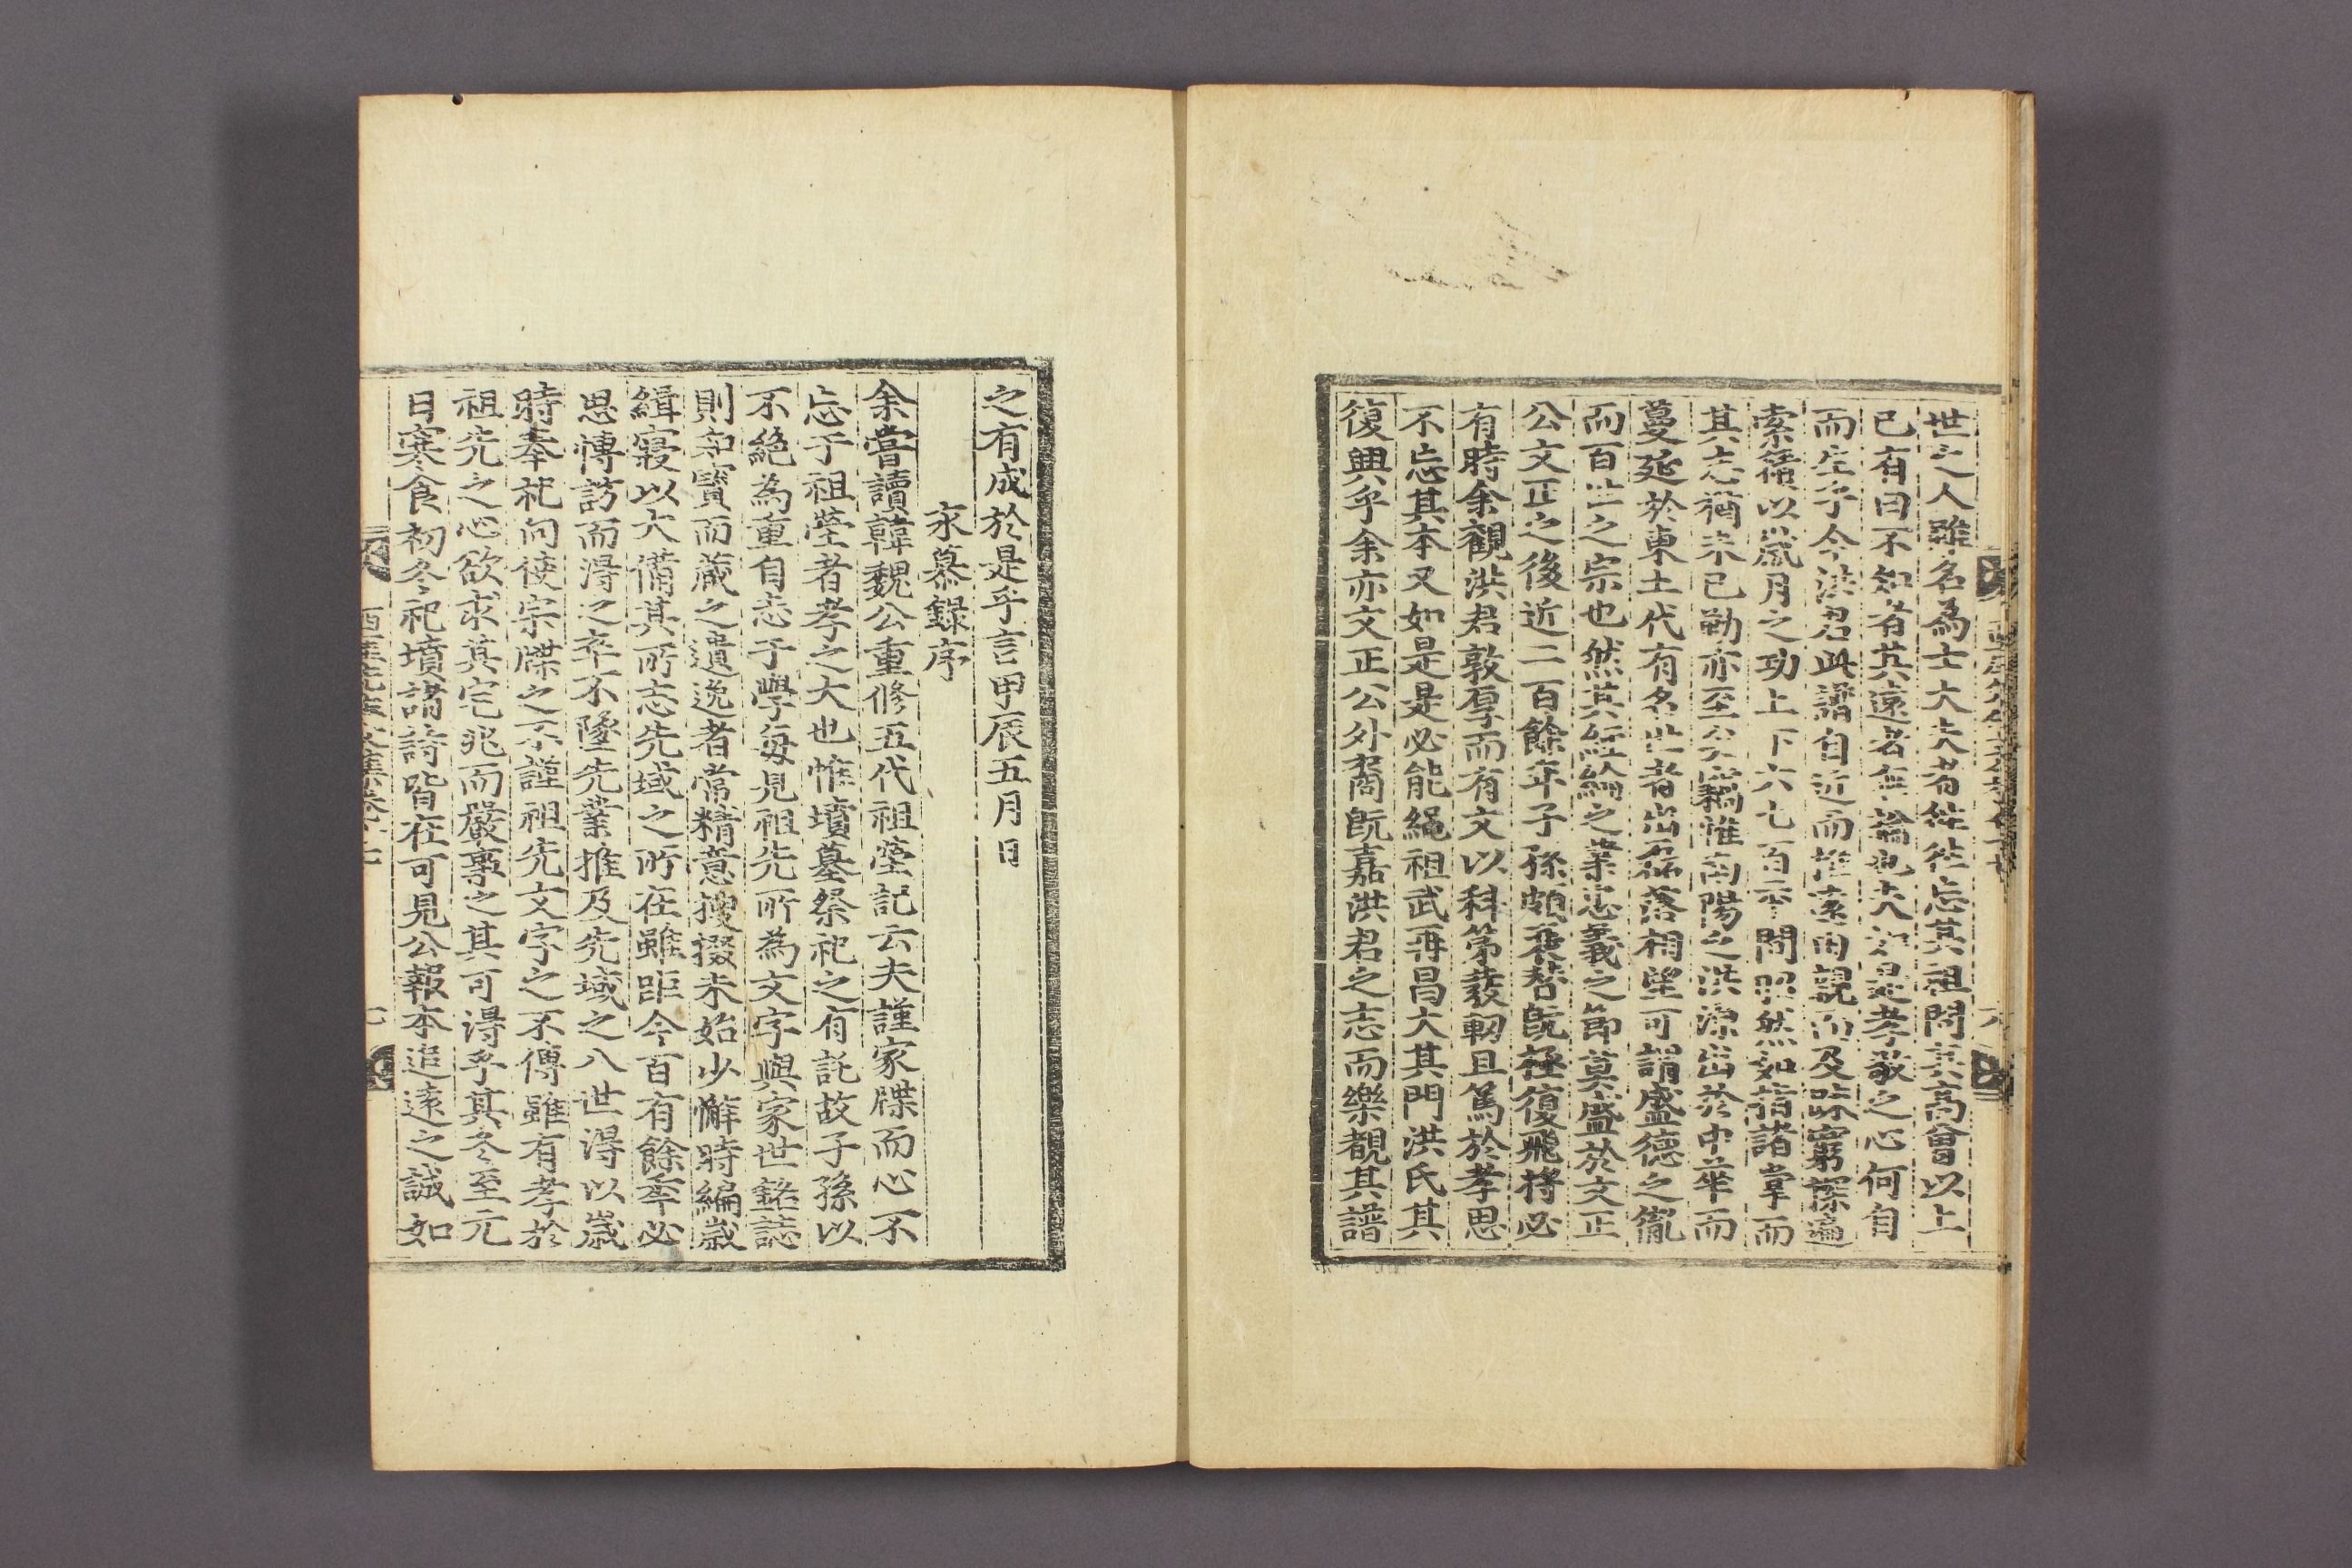 世之人雖名爲士大夫者徃徃忘其祖問其高曾以上
已有曰不知者其遠者無論也夫如是孝敬之心何自
而生乎今洪君此譜自近而推遠由親而及踈窮探遍
索積以歲月之功上下六七百年間照然如指諸掌而
其志猶未已勤亦至矣竊惟南陽之洪源出於中華而
蔓延於東土代有名世者出磊落相望可謂盛德之胤
而百世之宗也然其經綸之業忠義之節莫盛於文正
公文正之後近二百餘年子孫頗衰替旣極復飛將必
有時余觀洪君敦厚而有文以科第發軔且篤於孝思
不忘其本又如是是必能繩祖武再昌大其門洪氏其
復興乎余亦文正公外裔旣嘉洪君之志而樂覩其譜
之有成於是乎言甲辰五月日
永慕錄序
余嘗讀韓魏公重修五代祖塋記云夫謹家牒而心不
忘于祖塋者孝之大也惟墳墓祭祀之有託故子孫以
不絶為重自志于學每見祖先所為文字與家世銘誌
則知寳而藏之遺逸者常精意搜掇未始少懈時編歲
緝寢以大備其所志先域之所在雖距今百有餘年必
思博訪而淂之卒不墜先業推及先域之八世淂以歲
時奉祀向使宗牒之不謹祖先文字之不傳雖有孝於
祖先之心欲求其宅兆而嚴事之其可淂乎其冬至元
日寒食初冬祀墳諸詩皆在可見公報本追遠之誠如